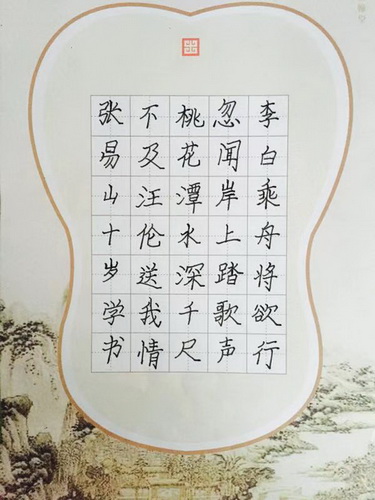 李白乘舟将欲行
忽闻岸上踏歌声
桃花潭水深千尺
不及汪伦送我情
张易山十岁学书